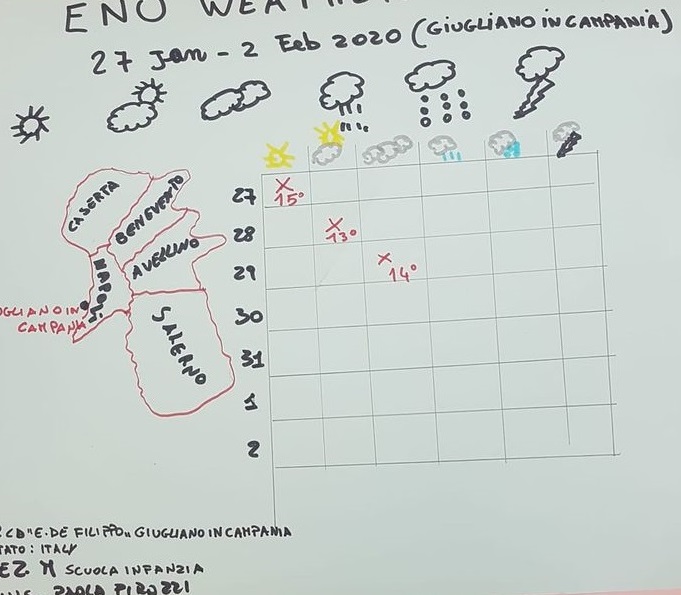 ENO WEATHE
27 Jan - 2 Feb 2020 (GIUGLIANO IN CAMPANIA)
CASERTA
BENEVENTO
AVELLINO
NAPOLI
GIUGLIANO IN
CAMPANIA
SALERNO
27 X 15°
28 X 13°
29 X 14°
30
31
1
2
CD "E. DE FILIPPO" GIUGLIANO IN CAMPANIA
TATO: ITALY
EZ. M SCUOLA INFANZIA
PAOLA PIROZZI